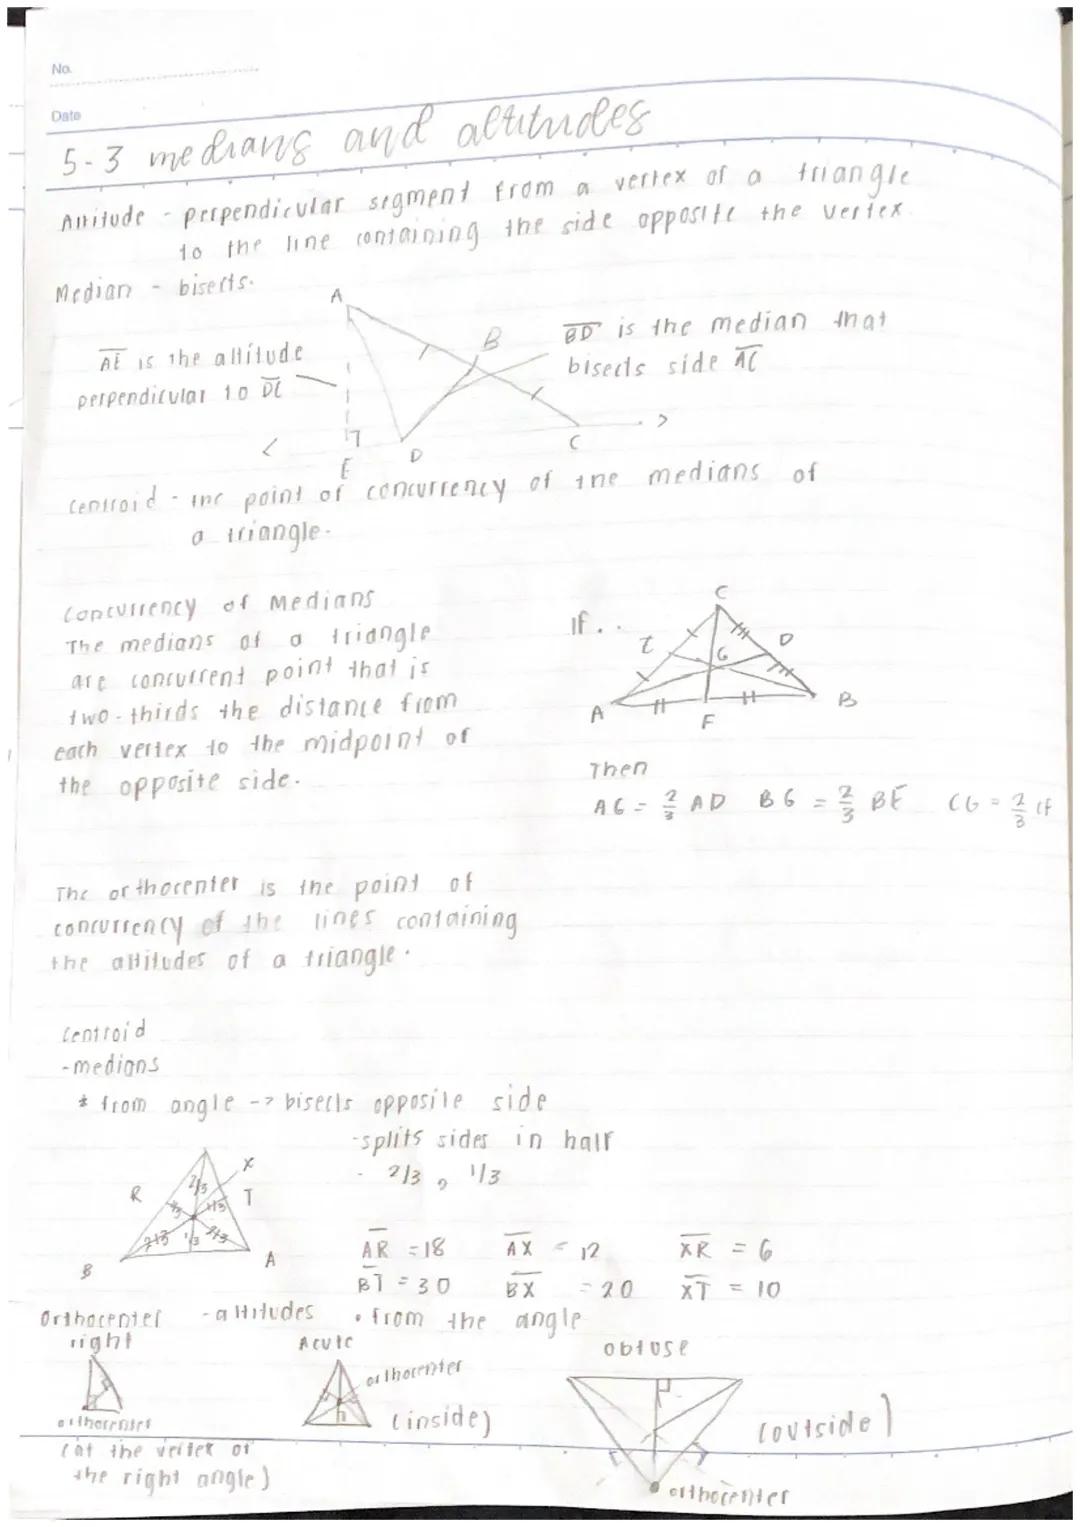 No.
Date
5-3 medians and altitudes
Altitude - perpendicular segment from a vertex of a triangle
to the line containing the side opposite the vertex.
Median - bisects.
A
B
BD is the median that
bisects side AC
AE is the altitude
perpendicular to DC
E
D
C
Centroid - the point of concurrency of the medians of
a triangle.
Concurrency of Medians
The medians of a triangle
are concurrent point that is
two-thirds the distance from
each vertex to the midpoint of
the opposite side.
If . .
C
D
G
A
F
B
Then
AG = 2/3 AD BG = 2/3 BE CG = 2/3 CF
The orthocenter is the point of
concurrency of the lines containing
the altitudes of a triangle.
Centroid
-medians
* from angle -> bisects opposite side
-splits sides in half
- 2/3, 1/3
X
R
T
2/3
1/3
1/3
2/3
1/3
2/3
B
A
AR = 18 AX = 12 XR = 6
BT = 30 BX = 20 XT = 10
Orthocenter - altitudes • from the angle
right
Acute
obtuse
orthocenter
(inside)
(outside)
orthocenter
(at the vertex of
the right angle)
orthocenter